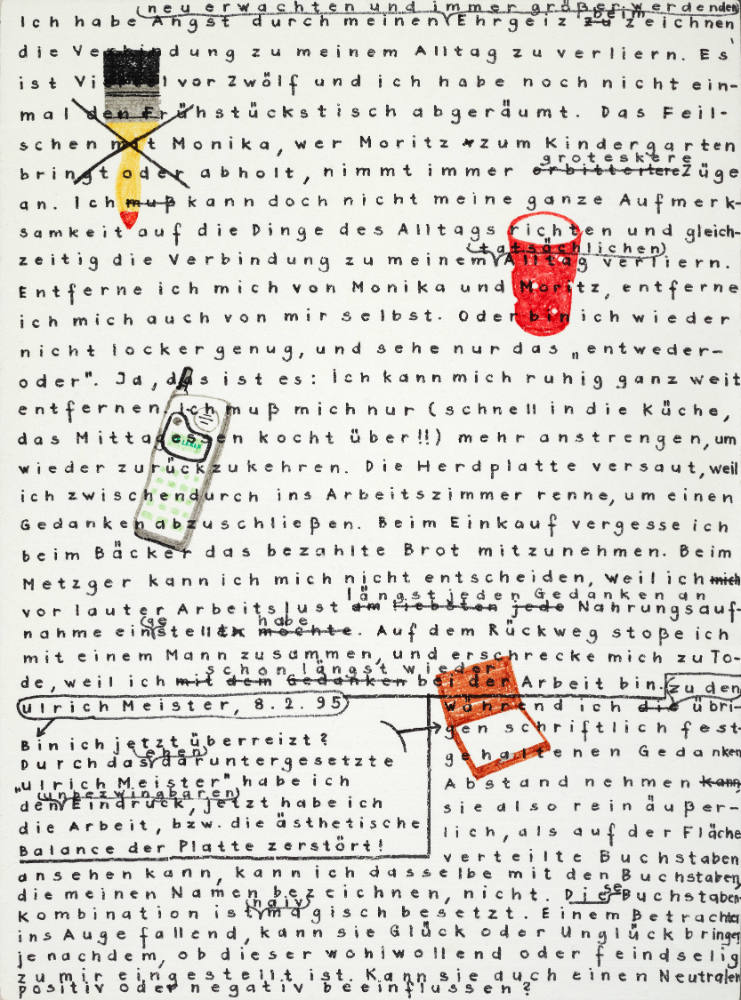 neu erwachten und immer größer werdenden
Ich habe Angst durch meinen Ehrgeiz zu beim zeichnen
die Verbindung zu meinem Alltag zu verliern. Es
ist Viertel vor Zwölf und ich habe noch nicht ein-
mal den Frühstückstisch abgeräumt. Das Feil-
schen mit Monika, wer Moritz zum Kindergarten
groteskere
bringt oder abholt, nimmt immer erbittertere Züge
an. Ich muß kann doch nicht meine ganze Aufmerk-
samkeit auf die Dinge des Alltags richten und gleich-
(tatsächlichen)
zeitig die Verbindung zu meinem Alltag verliern.
Entferne ich mich von Monika und Moritz, entferne
ich mich auch von mir selbst. Oder bin ich wieder
nicht locker genug, und sehe nur das „entweder-
oder". Ja, das ist es: Ich kann mich ruhig ganz weit
entfernen. Ich muß mich nur (schnell in die Küche,
das Mittagessen kocht über!!) mehr anstrengen, um
wieder zurückzukehren. Die Herdplatte versaut, weil
ich zwischendurch ins Arbeitszimmer renne, um einen
Gedanken abzuschließen. Beim Einkauf vergesse ich
beim Bäcker das bezahlte Brot mitzunehmen. Beim
Metzger kann ich mich nicht entscheiden, weil ich mich
längst jeden Gedanken an
vor lauter Arbeitslust am liebsten jede Nahrungsauf-
ge habe
nahme einstellen möchte. Auf dem Rückweg stoße ich
mit einem Mann zusammen, und erschrecke mich zu To-
schon längst wieder
de, weil ich mit dem Gedanken bei der Arbeit bin.
Ulrich Meister, 8.2.95
Bin ich jetzt überreizt?
eben
Durch das daruntergesetzte
„Ulrich Meister" habe ich
(unbezwingbaren)
den Eindruck, jetzt habe ich
die Arbeit, bzw. die ästhetische
Balance der Platte zerstört!
zu den
während ich die übri-
gen schriftlich fest-
gehaltenen Gedanken
Abstand nehmen kann
sie also rein äußer-
lich, als auf der Fläche
verteilte Buchstaben
ansehen kann, kann ich dasselbe mit den Buchstaben,
die meinen Namen bezeichnen, nicht. Diese Buchstaben-
(naiv)
kombination ist magisch besetzt. Einem Betrachter
ins Auge fallend, kann sie Glück oder Unglück bringen
je nachdem, ob dieser wohlwollend oder feindselig
zu mir eingestellt ist. Kann sie auch einen Neutralen
positiv oder negativ beeinflussen?